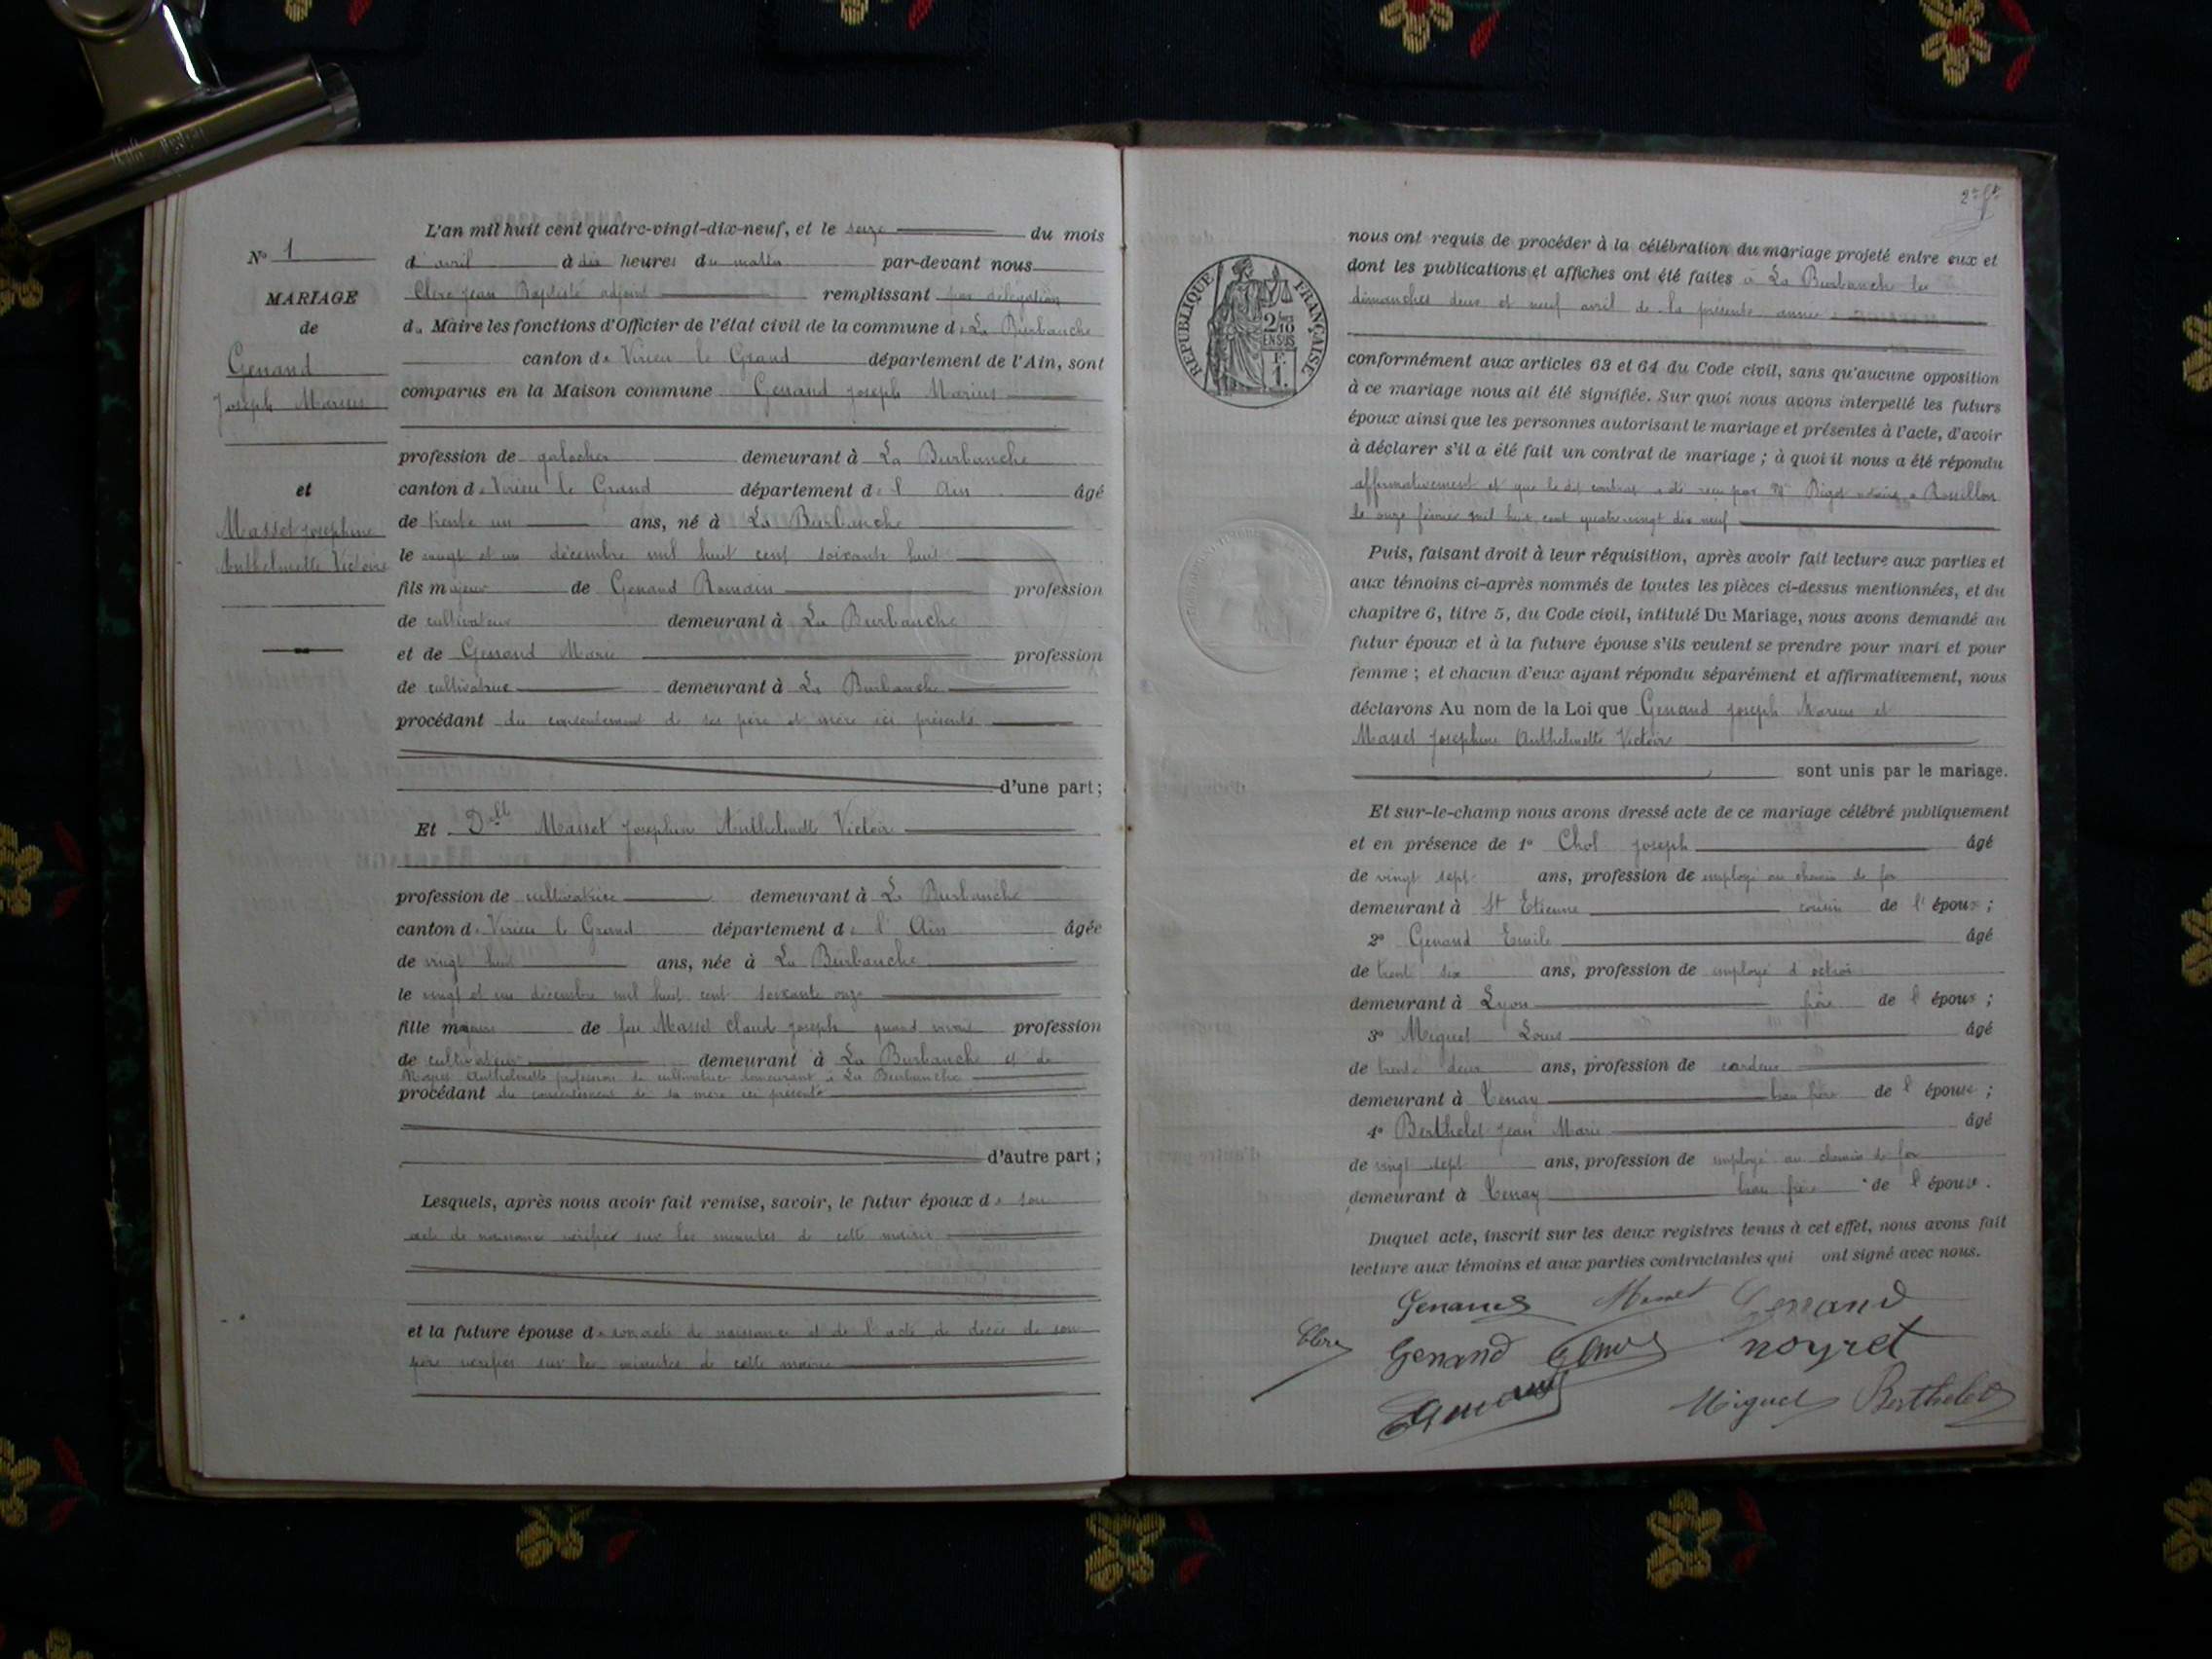 N° 1
MARIAGE
de
Genand
Joseph Marius
et
Masset Josephine
Anthelmette Victoire
L'an mil huit cent quatre-vingt-dix-neuf, et le seize du mois
d'avril à dix heures du matin par-devant nous
Clerc Jean Baptiste adjoint remplissant par délégation
du Maire les fonctions d'Officier de l'état civil de la commune de La Burbanche
canton de Virieu le Grand département de l'Ain, sont
comparus en la Maison commune Genand Joseph Marius
profession de galocher demeurant à La Burbanche
canton de Virieu le Grand département de l'Ain âgé
de trente un ans, né à La Burbanche
le vingt et un décembre mil huit cent soixante huit
fils majeur de Genand Romain profession
de cultivateur demeurant à La Burbanche
et de Genand Marie profession
de cultivatrice demeurant à La Burbanche
procédant du consentement de ses père et mère ici présents
d'une part;
Et Dlle Masset Josephine Anthelmette Victoire
profession de cultivatrice demeurant à La Burbanche
canton de Virieu le Grand département de l'Ain âgée
de vingt huit ans, née à La Burbanche
le vingt et un décembre mil huit cent soixante onze
fille majeure de feu Masset Claude Joseph quand vivait profession
de cultivateur demeurant à La Burbanche et de
Noyret Anthelmette profession de cultivatrice demeurant à La Burbanche
procédant du consentement de sa mère ici présente
d'autre part;
Lesquels, après nous avoir fait remise, savoir, le futur époux de son
acte de naissance vérifié sur les minutes de cette mairie
et la future épouse de son acte de naissance et de l'acte de décès de son
père vérifiés sur les minutes de cette mairie
RÉPUBLIQUE FRANÇAISE
2/10 EN SUS
F. 1.
nous ont requis de procéder à la célébration du mariage projeté entre eux et
dont les publications et affiches ont été faites à La Burbanche les
dimanches deux et neuf avril de la présente année
conformément aux articles 63 et 64 du Code civil, sans qu'aucune opposition
à ce mariage nous ait été signifiée. Sur quoi nous avons interpellé les futurs
époux ainsi que les personnes autorisant le mariage et présentes à l'acte, d'avoir
à déclarer s'il a été fait un contrat de mariage; à quoi il nous a été répondu
affirmativement et que le dit contrat a été reçu par Me Bigot notaire à Rossillon
le onze février mil huit cent quatre vingt dix neuf
Puis, faisant droit à leur réquisition, après avoir fait lecture aux parties et
aux témoins ci-après nommés de toutes les pièces ci-dessus mentionnées, et du
chapitre 6, titre 5, du Code civil, intitulé Du Mariage, nous avons demandé au
futur époux et à la future épouse s'ils veulent se prendre pour mari et pour
femme; et chacun d'eux ayant répondu séparément et affirmativement, nous
déclarons Au nom de la Loi que Genand Joseph Marius et
Masset Josephine Anthelmette Victoire
sont unis par le mariage.
Et sur-le-champ nous avons dressé acte de ce mariage célébré publiquement
et en présence de 1° Chol Joseph âgé
de vingt sept ans, profession de employé au chemin de fer
demeurant à St Etienne cousin de l'époux;
2° Genand Emile âgé
de trente six ans, profession de employé d'octroi
demeurant à Lyon frère de l'époux;
3° Miguet Louis âgé
de trente deux ans, profession de cardeur
demeurant à Tenay beau frère de l'épouse;
4° Berthelet Jean Marie âgé
de vingt sept ans, profession de employé au chemin de fer
demeurant à Tenay beau frère de l'épouse.
Duquel acte, inscrit sur les deux registres tenus à cet effet, nous avons fait
lecture aux témoins et aux parties contractantes qui ont signé avec nous.
Genand Masset Genand
Clerc Genand noyret
Miguet Berthelet